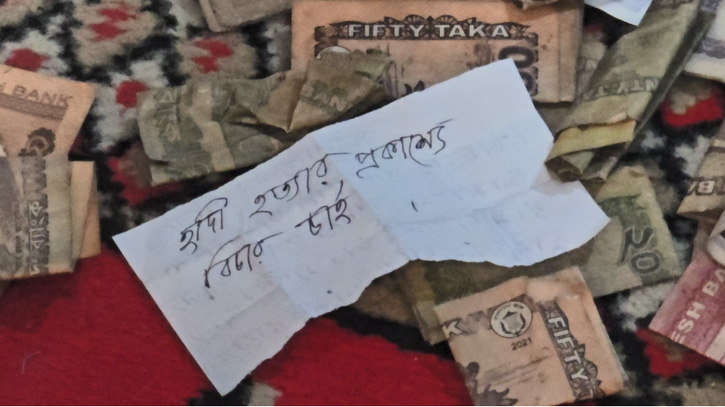 FIFTY TAKA
BANK
হাদী হত্যার প্রকাশ্যে
বিচার চাই
২০
2021
FIFTY
ESH B